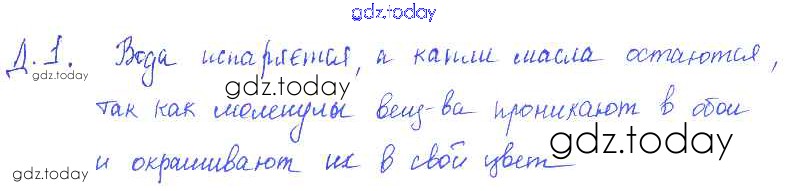 gdz.today
Д.1. Вода испаряется, а капли масла остаются,
gdz.today
так как молекулы вещ-ва проникают в обои
gdz.today
gdz.today
и окрашивают их в свой цвет
gdz.today